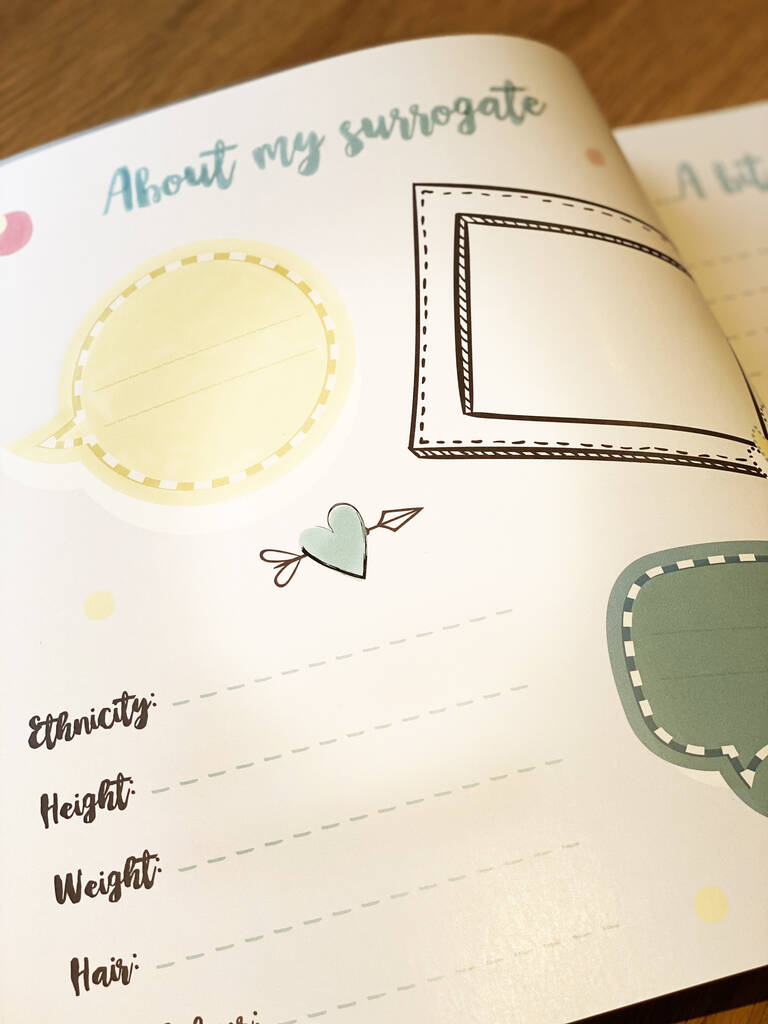 About my surrogate
A bit
Ethnicity:
Height:
Weight:
Hair: